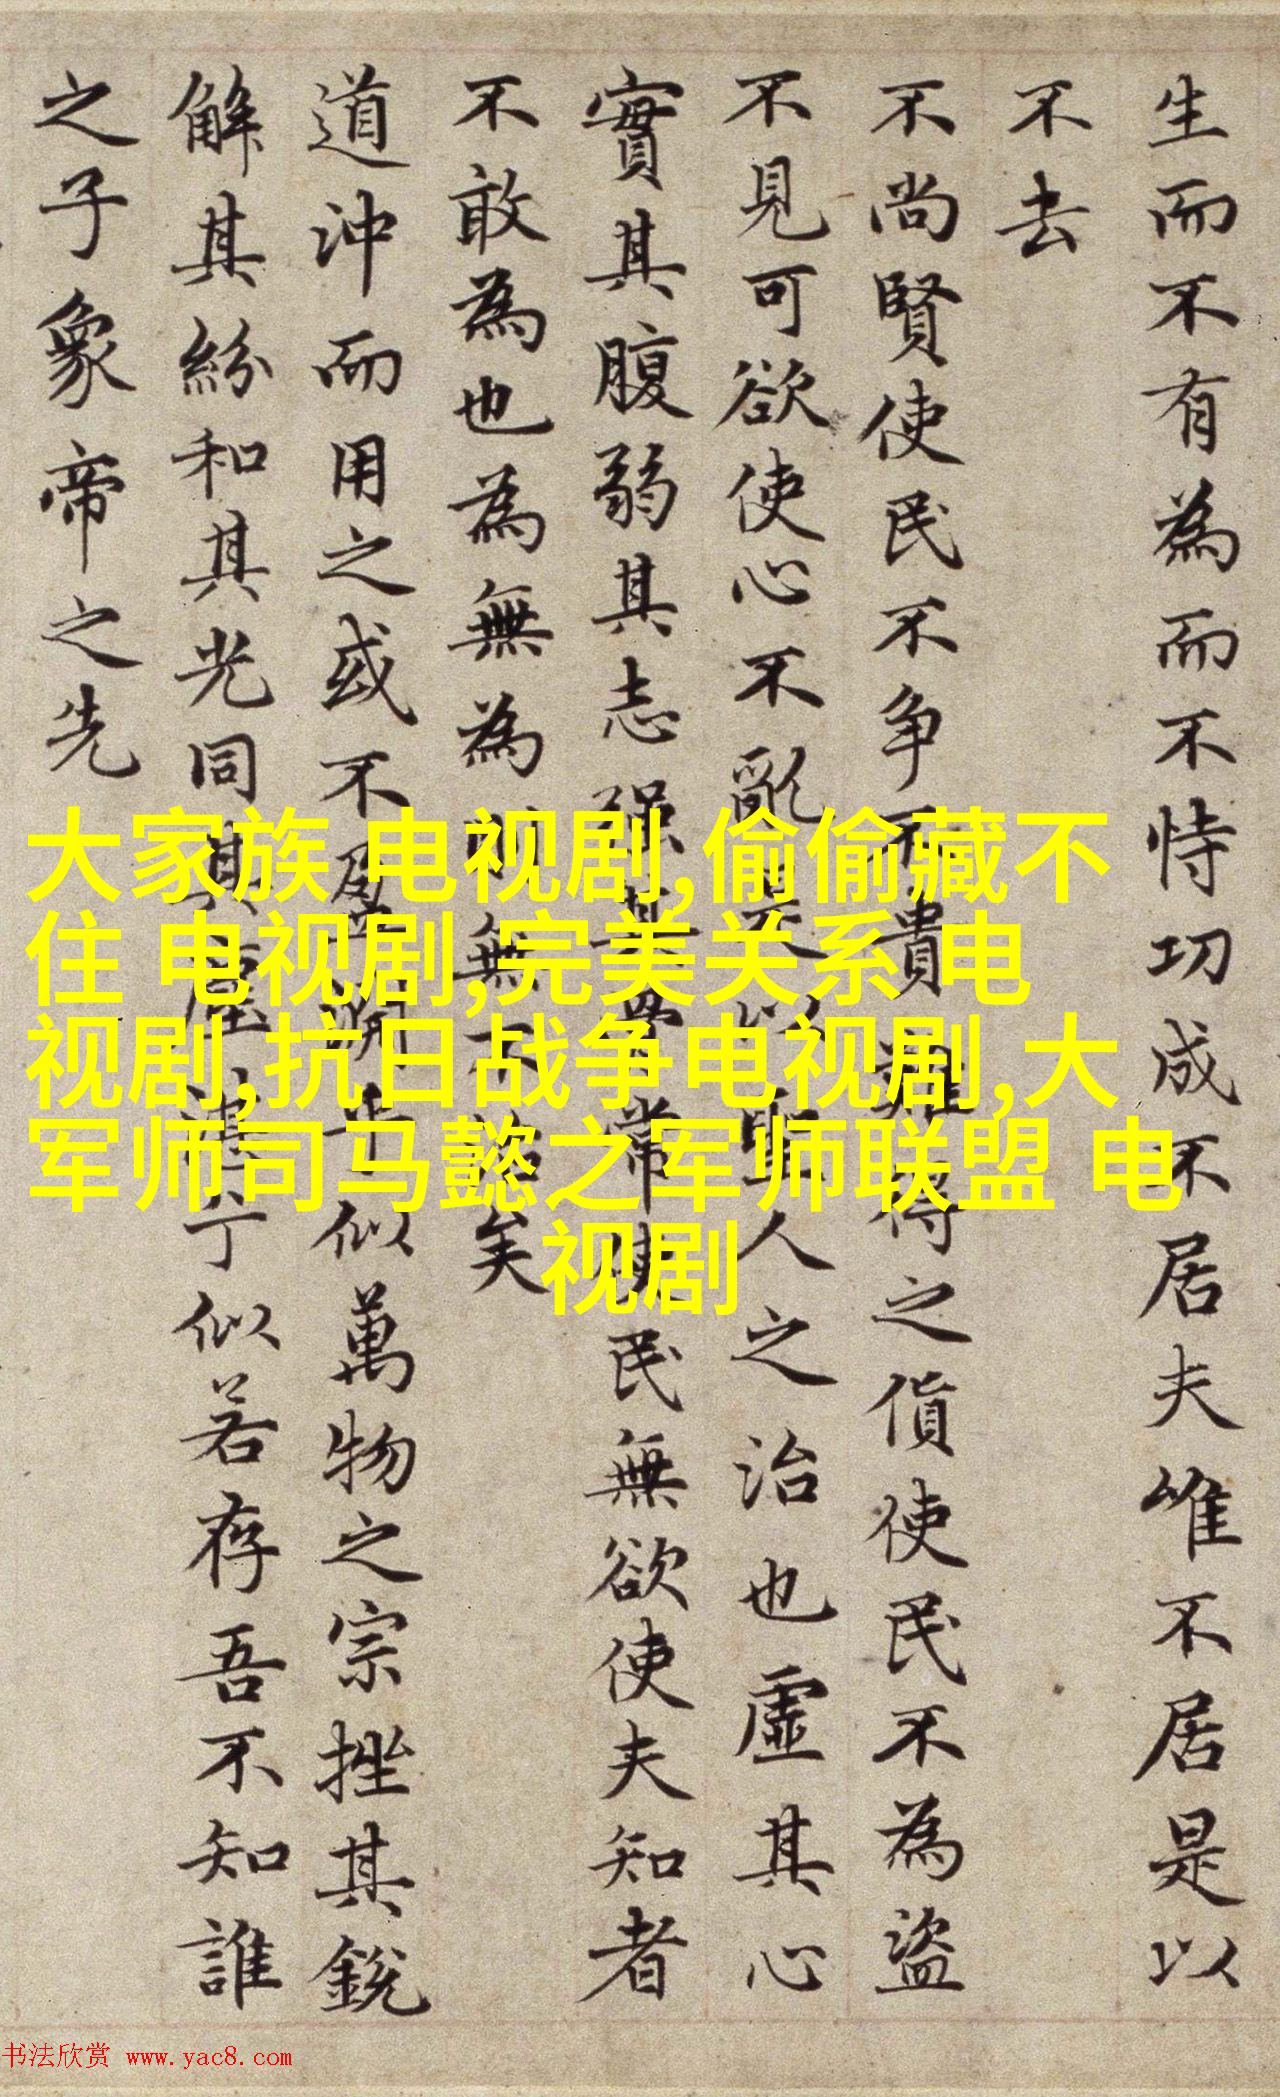 生而不有為而不恃功成不居夫唯不居是以
不去
不尚賢使民不争不貴難得之貨使民不為盜
不見可欲使心不亂是以聖人之治也虛其心
實其腹弱其志强其骨常使民無欲使夫知者
不敢為也為無為則無不治矣
道沖而用之或不盈淵乎似萬物之宗挫其銳
解其紛和其光同其塵湛兮似若存吾不知誰
之子象帝之先
大家族 电视剧,偷偷藏不
住 电视剧,完美关系 电
视剧,抗日战争电视剧,大
军师司马懿之军师联盟 电
视剧
书法欣赏 www.yac8.com